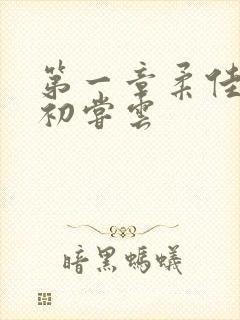 第一章柔佳
初尝云
暗黑螞蟻